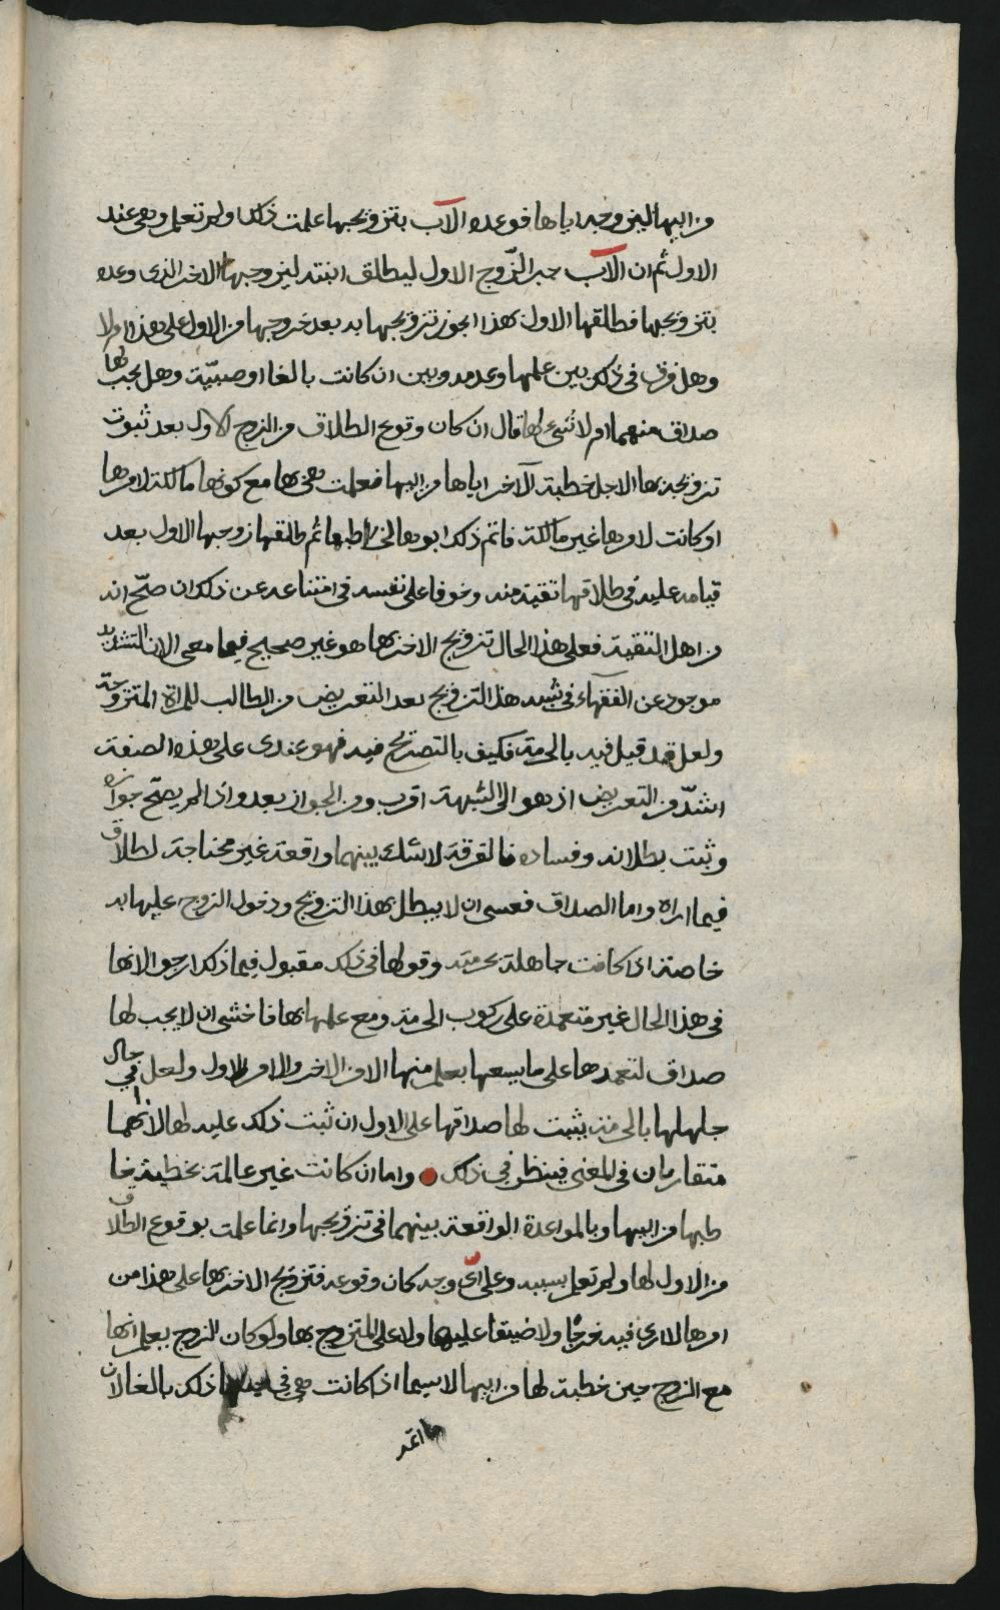 من ابيها ليزوجه اياها فوعده الأب بتزويجها علمت ذلك او لم تعلم وهي عند
الاول ثم ان الأب جبر الزّوج الاول ليطلق ابنته ليزوجها الاخر الذي وعده
بتزويجها فطلقها الاول بهذا ايجوز تزويجها به بعد خروجها من الاول على هذا ام لا
وهل فرق في ذلك بين علمها وعدمه وبين ان كانت بالغا او صبيّة وهل يجب لها
صداق منهما ام لا شيء لها قال ان كان وقوع الطلاق من الزوج الاول بعد ثبوت
تزويجه بها لاجل خطبة الآخر اياها من ابيها فعلمت هي بها مع كونها مالكة لامرها
او كانت لامرها غير مالكة فاتم ذلك ابوها لخاطبها ثم طلقها زوجها الاول بعد
قيامه عليه في طلاقها تقية منه وخوفا على نفسه في امتناعه عن ذلك ان صحّ انه
من اهل التقية فعلى هذا الحال تزويج الاخر بها هو غير صحيح فيما معي الان التشديد
موجود عن الفقهاء في شبه هذا التزويج بعد التعريض من الطالب للمراة المتزوجة
ولعل قد قيل فيه بالحرمة فكيف بالتصريح فيه فهو عندي على هذه الصفة
اشدّ من التعريض اذ هو الى الشبهة اقرب ومن الجواز بعد واذا لم يصحّ جوازه
وثبت بطلانه وفساده فالفرقة لا شك بينهما واقعة غير محتاجة لطلاق
فيما اراه واما الصداق فعسى ان لا يبطل بهذا التزويج ودخول الزوج عليها به
خاصة اذا كانت جاهلة بحرمته وقولها في ذلك مقبول فيما ذلك ارجو لانها
في هذا الحال غير متعمدة على ركوب الحرمة ومع علمها بها فاخشى ان لا يجب لها
صداق لتعمدها على ما يسعها بعلم منها لا من الاخر ولا من الاول ولعل في حال
جهلها بالحرمة يثبت لها صداقها على الاول ان ثبت ذلك عليه لها لانهما
متقاربان في المعنى فينظر في ذلك • واما ان كانت غير عالمة بخطبة خا
طبها من ابيها وبالمواعدة الواقعة بينهما في تزويجها وانما علمت بوقوع الطلاق
من الاول لها ولم تعلم بسببه وعلى أي وجه كان وقوعه فتزويج الاخر بها على هذا من
امرها لا ارى فيه حرجا ولا ضيقا عليها ولا على المتزوج بها ولو كان الزوج يعلم انها
مع الزوج حين خطبة لها من ابيها لا سيما اذا كانت هي في ذلك بالغا لان